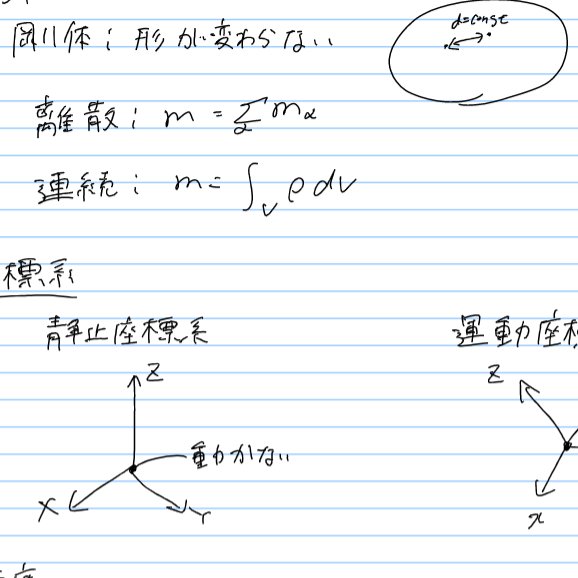 d=const
剛体；形が変わらない
離散；m = Σ_α m_α
連続；m = ∫_V ρ dV
標系
静止座標系
運動座標
Z
Z
動かない
X
Y
x